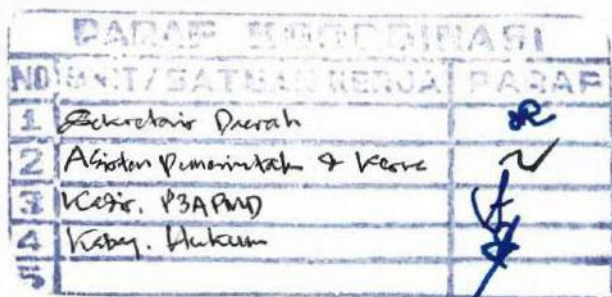 PARAF KOORDINASI
NO UNIT/SATUAN KERJA PARAF
1 Sekretaris Daerah
2 Asisten Pemerintah & Kesra
3 Kadis. P3APMD
4 Kabag. Hukum
5